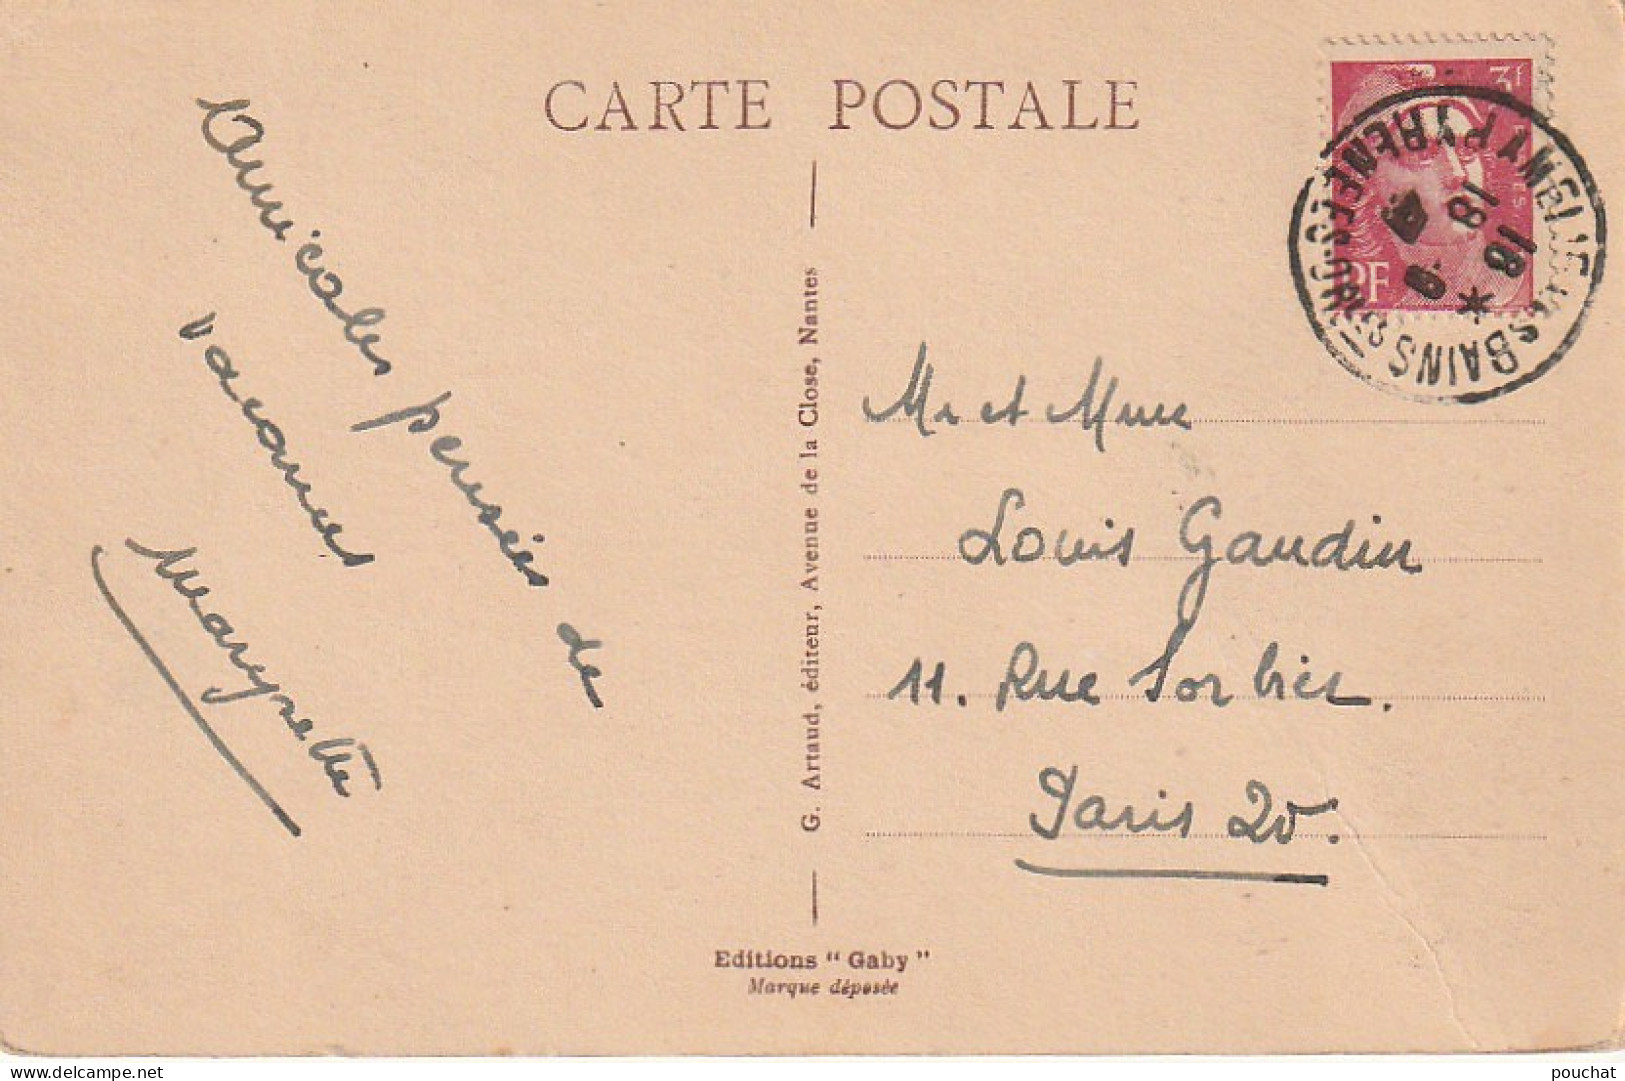 CARTE POSTALE
Amicales pensées de
vacances
Maryvette
G. Artaud, éditeur, Avenue de la Close, Nantes
3f
RF
AMELIE LES BAINS
PYRENEES ORles
18
18
Mr et Mme
Louis Gaudin
11. Rue Sorbier.
Paris 20.
Editions "Gaby"
Marque déposée
delcampe.net
pouchat